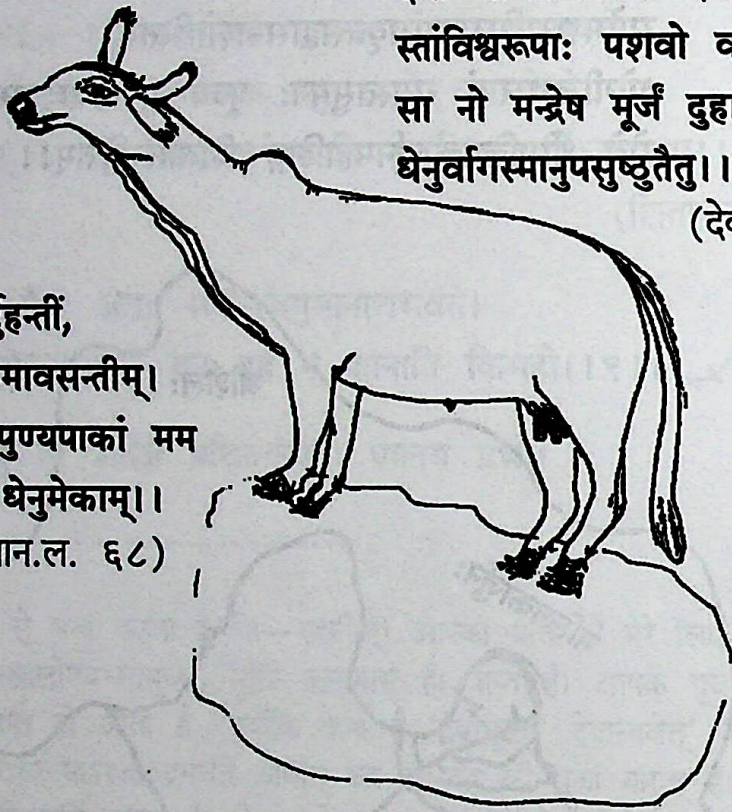 स्तांविश्वरूपाः पशवो व
सा नो मन्द्रेष मूर्जं दुहा
धेनुर्वागस्मानुपसुष्ठुतैतु।।
(देव
र्दुहन्तीं,
मावसन्तीम्।
पुण्यपाकां मम
धेनुमेकाम्।।
ान.ल. ६८)